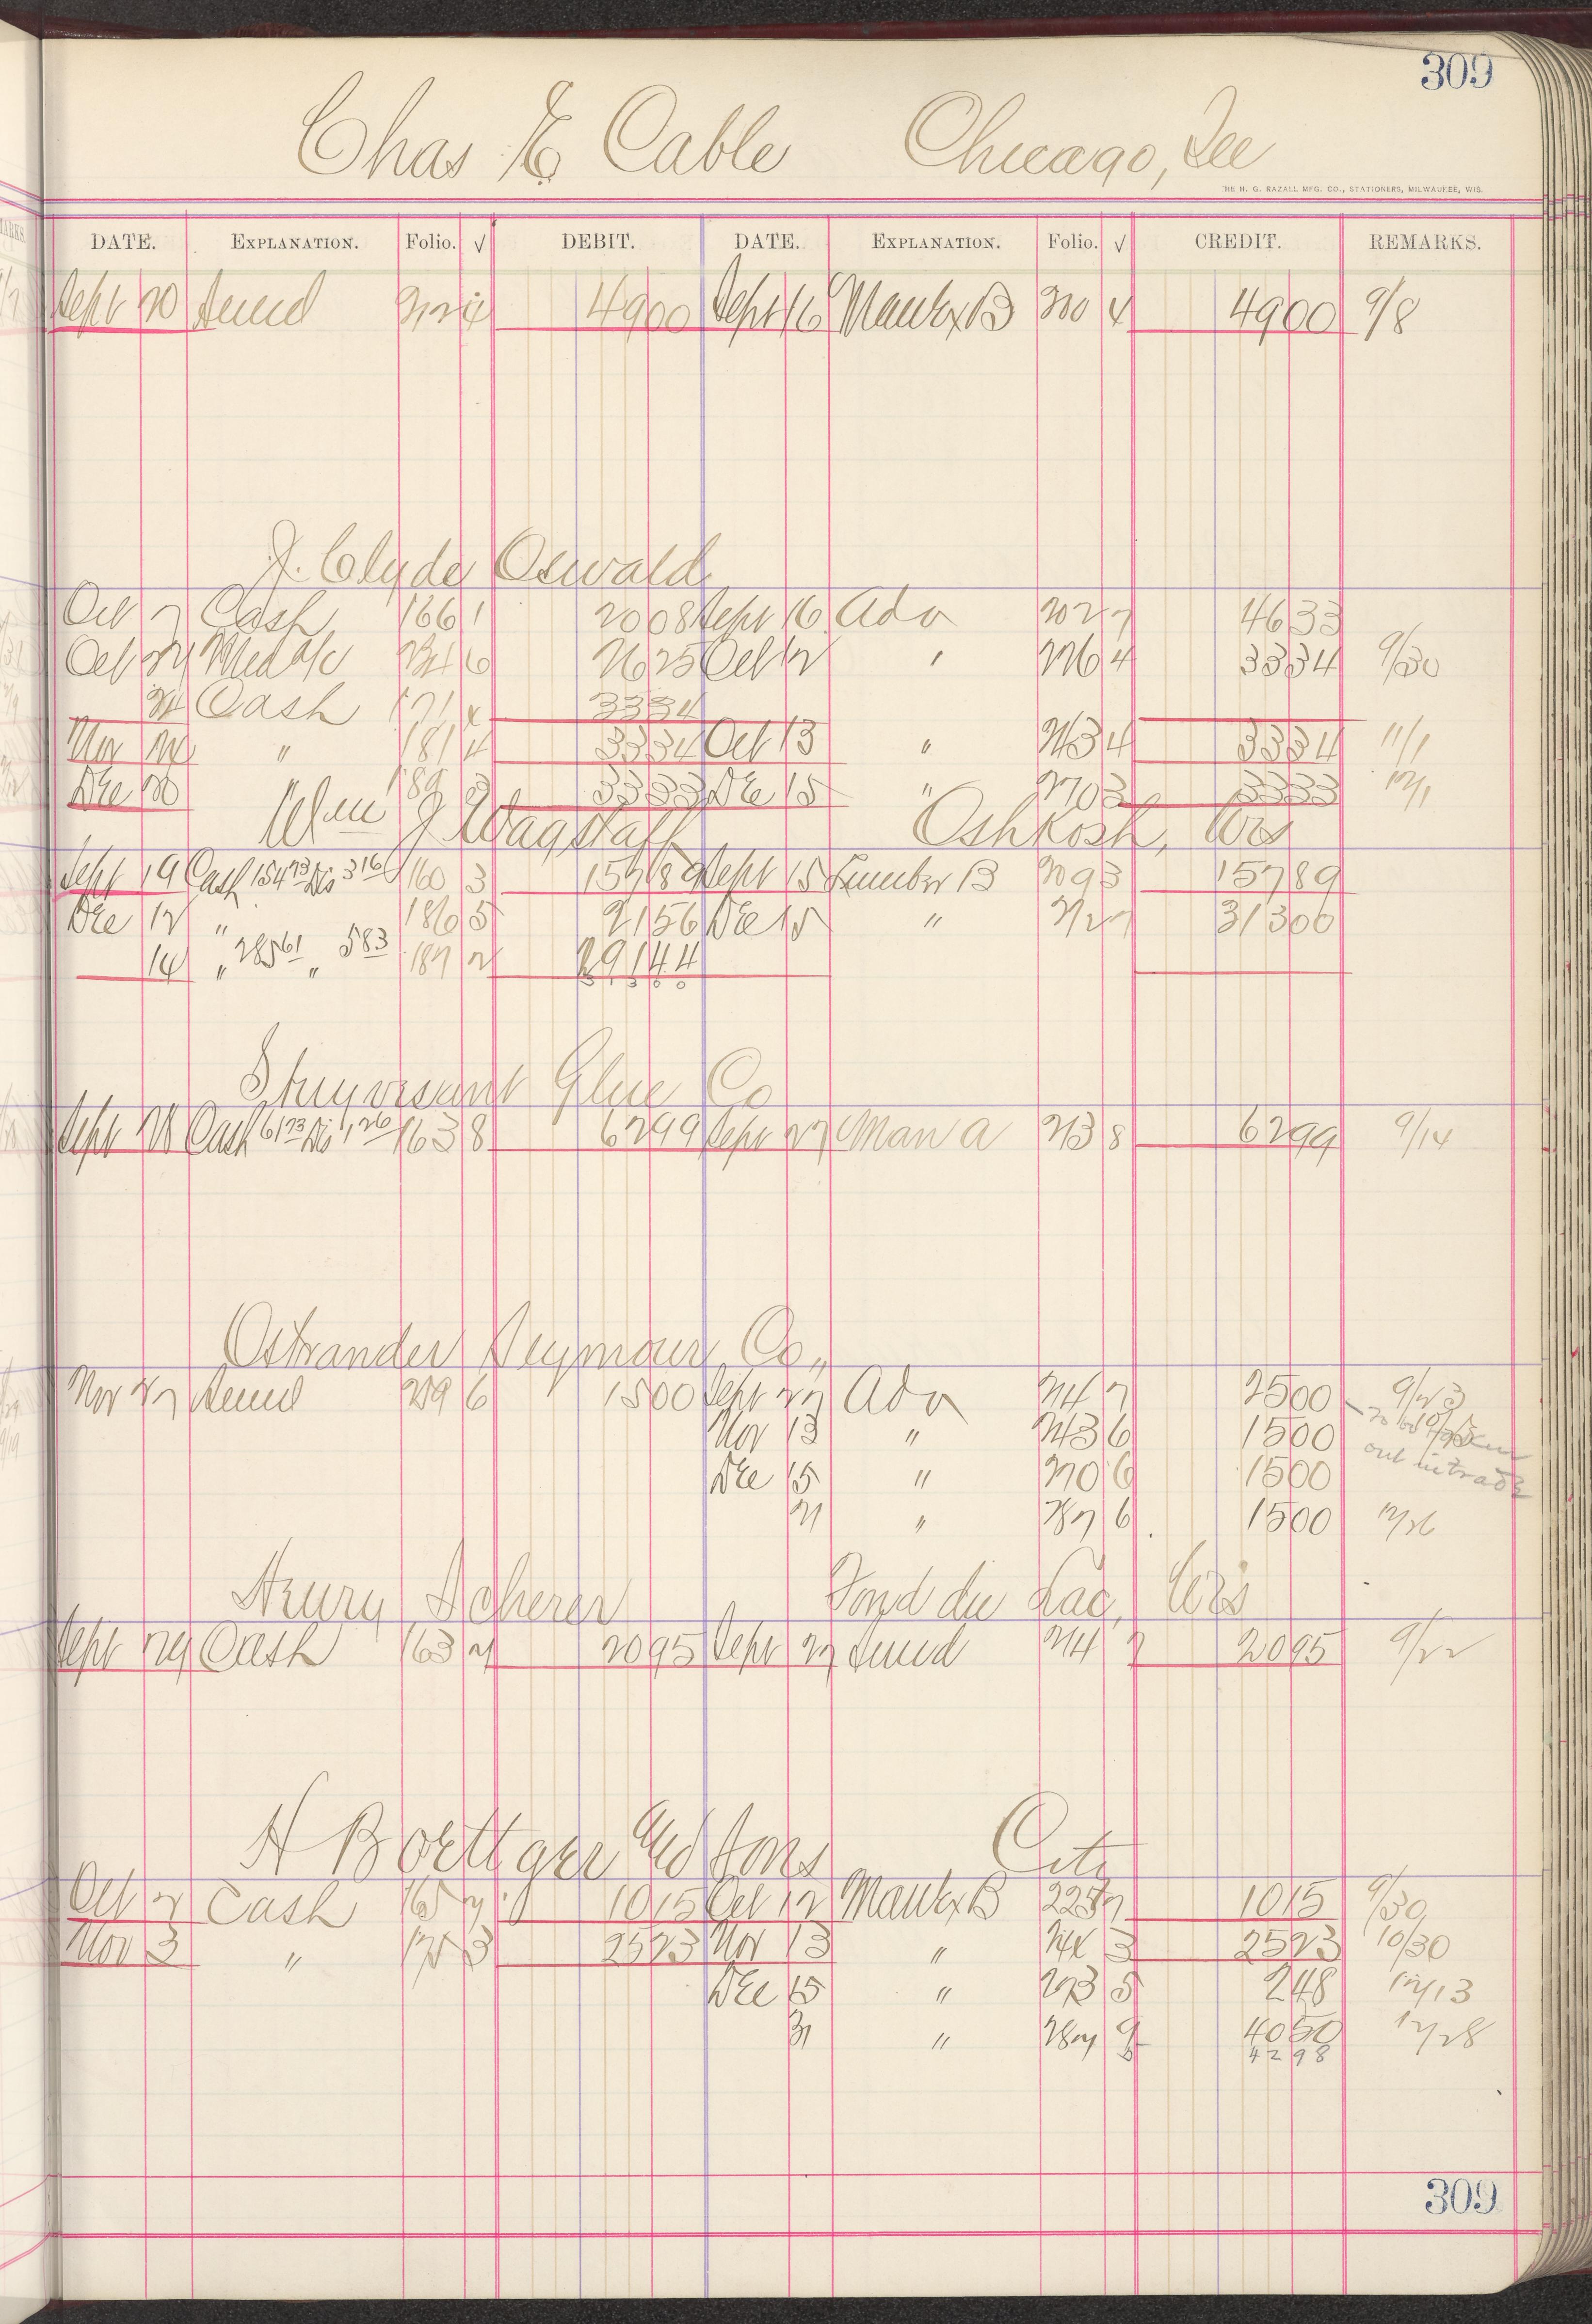 309
Chas E. Cable Chicago, Ill
THE H. G. RAZALL MFG. CO., STATIONERS, MILWAUKEE, WIS.
DATE. EXPLANATION. Folio. √ DEBIT. DATE. EXPLANATION. Folio. √ CREDIT. REMARKS.
Sept 20 Sund 4900 Sept 16 Man Ex B 200 4 4900 9/8
J. Clyde Oswald
Oct 7 Cash 166 1 2008 Sept 16 Adv 202 7 4633
Oct 24 Mdse 6 2625 Oct 12 " 226 4 3334 9/30
24 Cash 171 x 3334
Nov 22 " 181 4 3334 Oct 13 " 243 4 3334 11/1
Dec 20 189 3 3333 Dec 15 " 270 3333 12/1
Wm J Wagstaff Oshkosh, Wis
Sept 19 Cash 154 73 Dis 3 16 160 3 15789 Sept 15 Lumber B 209 3 15789
Dec 12 " 186 5 2156 Dec 15 " 31300
14 " 285 61 " 5 83 187 2 29144
Stuyvesant Glue Co
Sept 28 Cash 61 73 Dis 1 26 163 8 6299 Sept 27 Man a 213 8 6299 9/14
Ostrander Seymour Co.,
Nov 27 Sund 219 6 1500 Sept 27 Adv 214 7 2500 9/23
Nov 13 " 243 6 1500
Dec 15 " 270 6 1500 out in trade
31 " 287 6 1500 12/26
Henry Scherer Fond du Lac, Wis
Sept 29 Cash 163 2095 Sept 27 Sund 214 7 2095 9/22
H Boettger & Sons City
Oct 7 Cash 1015 Oct 12 Man Ex B 225 7 1015 9/30
Nov 3 " 175 3 2523 Nov 13 " 3 2523 10/30
Dec 15 " 273 5 248 12/13
31 " 287 9 4050 12/28
4298
309